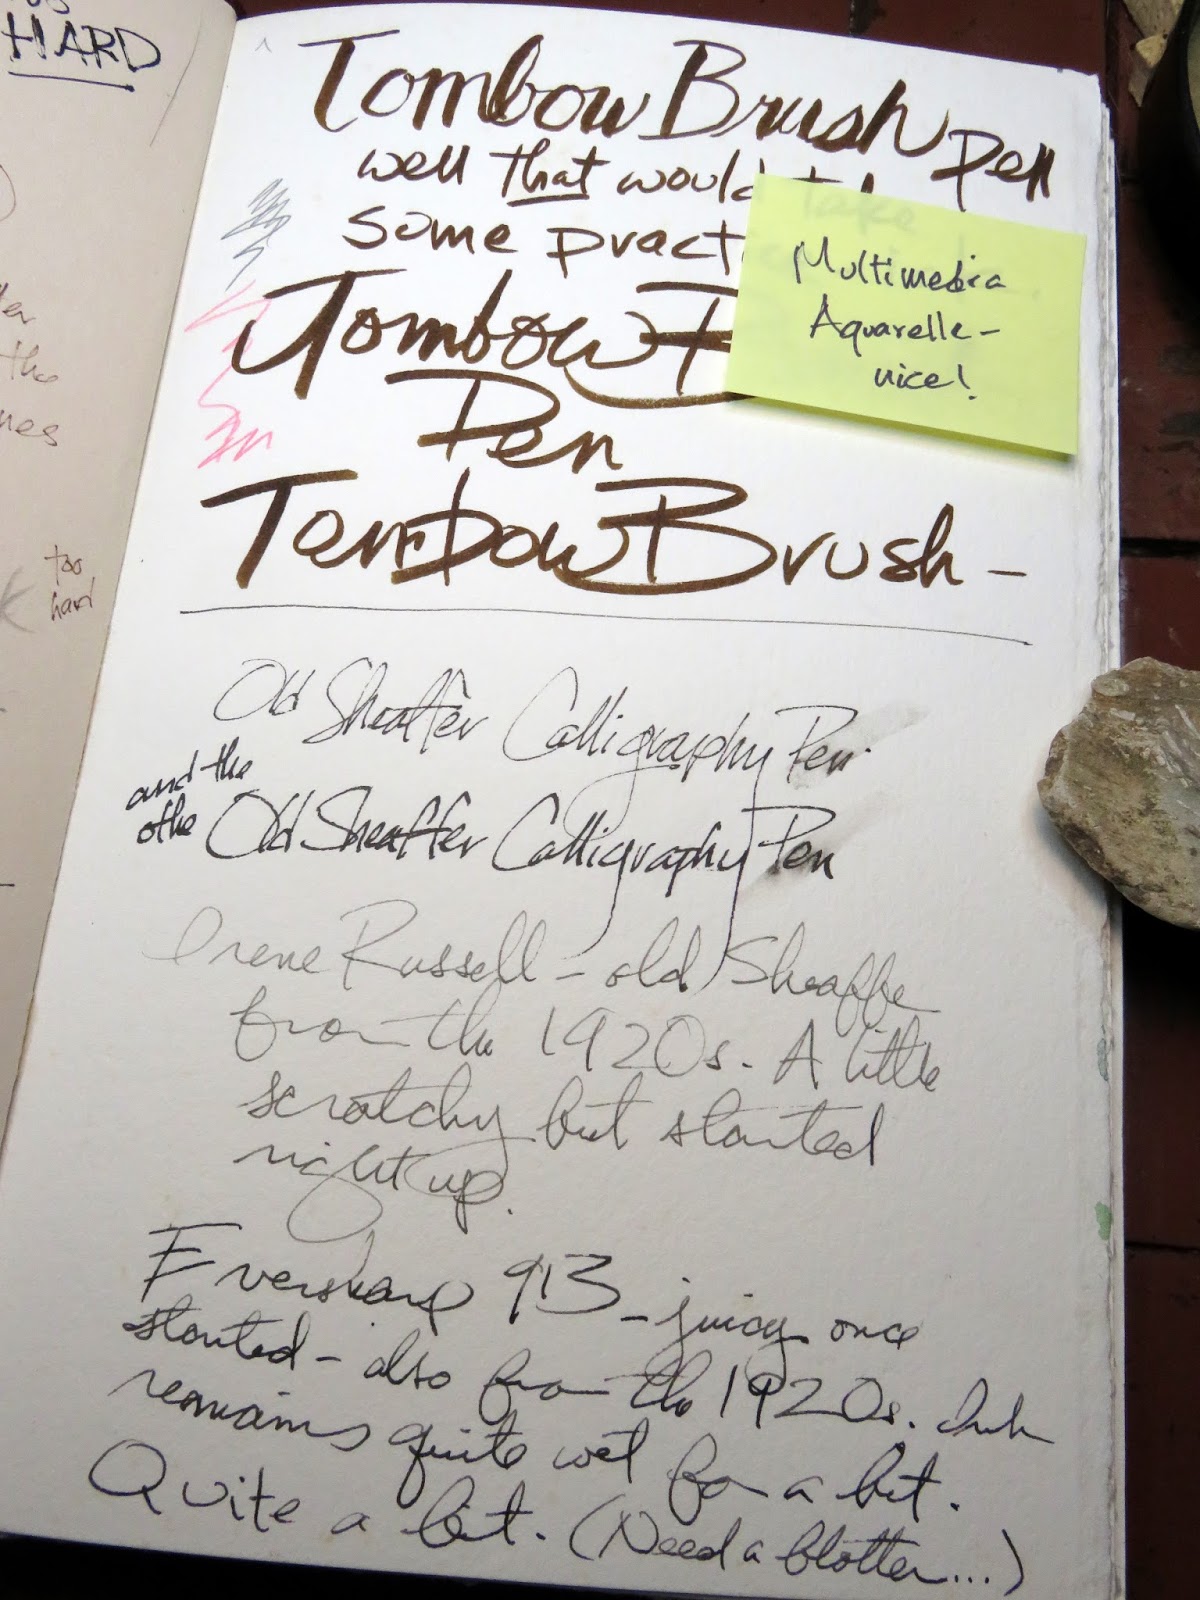 HARD
the
too
hard
Tombow Brush Pen
well that would take
some practi
Multimedia
Aquarelle-
nice!
Tombow B
Pen
Tombow Brush -
Old Sheaffer Calligraphy Pen
and the
othe Old Sheaffer Calligraphy Pen
Irene Russell - old Sheaffe
from the 1920s. A little
scratchy but started
right up.
Eversharp 913 - juicy once
started - also from the 1920s. Ink
remains quite wet for a bit.
Quite a bit. (Need a blotter...)